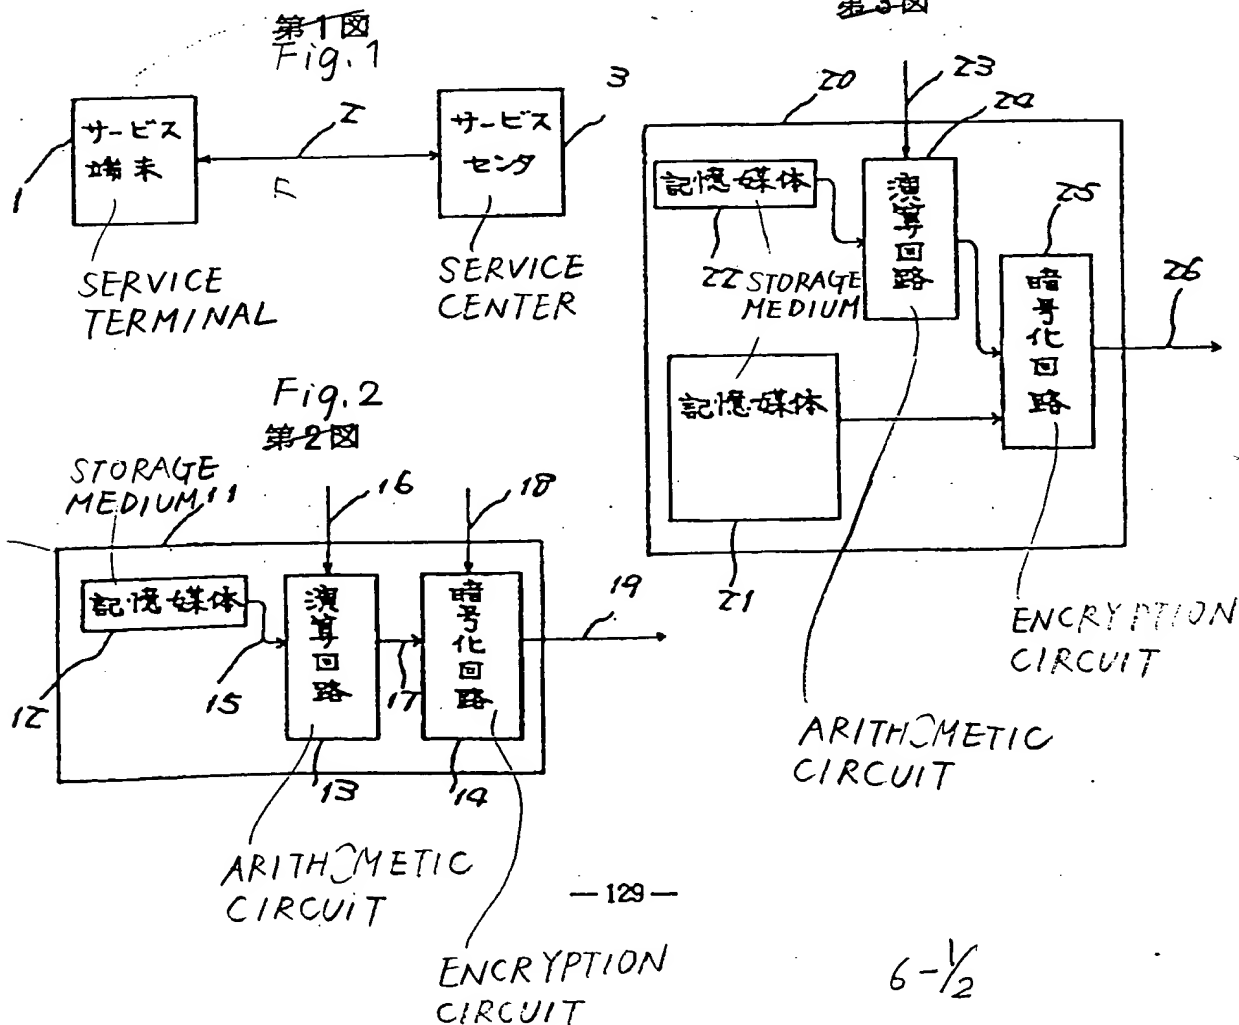 第1図
Fig.1
サービス
端末
1
2
サービス
センタ
3
SERVICE
TERMINAL
SERVICE
CENTER
Fig.2
第2図
STORAGE
MEDIUM
11
16
18
記憶媒体
演算回路
暗号化回路
19
12
15
17
13
14
ARITHMETIC
CIRCUIT
ENCRYPTION
CIRCUIT
第3図
20
23
24
記憶媒体
演算回路
25
22
STORAGE
MEDIUM
暗号化回路
26
記憶媒体
21
ENCRYPTION
CIRCUIT
ARITHMETIC
CIRCUIT
—129—
6-1/2